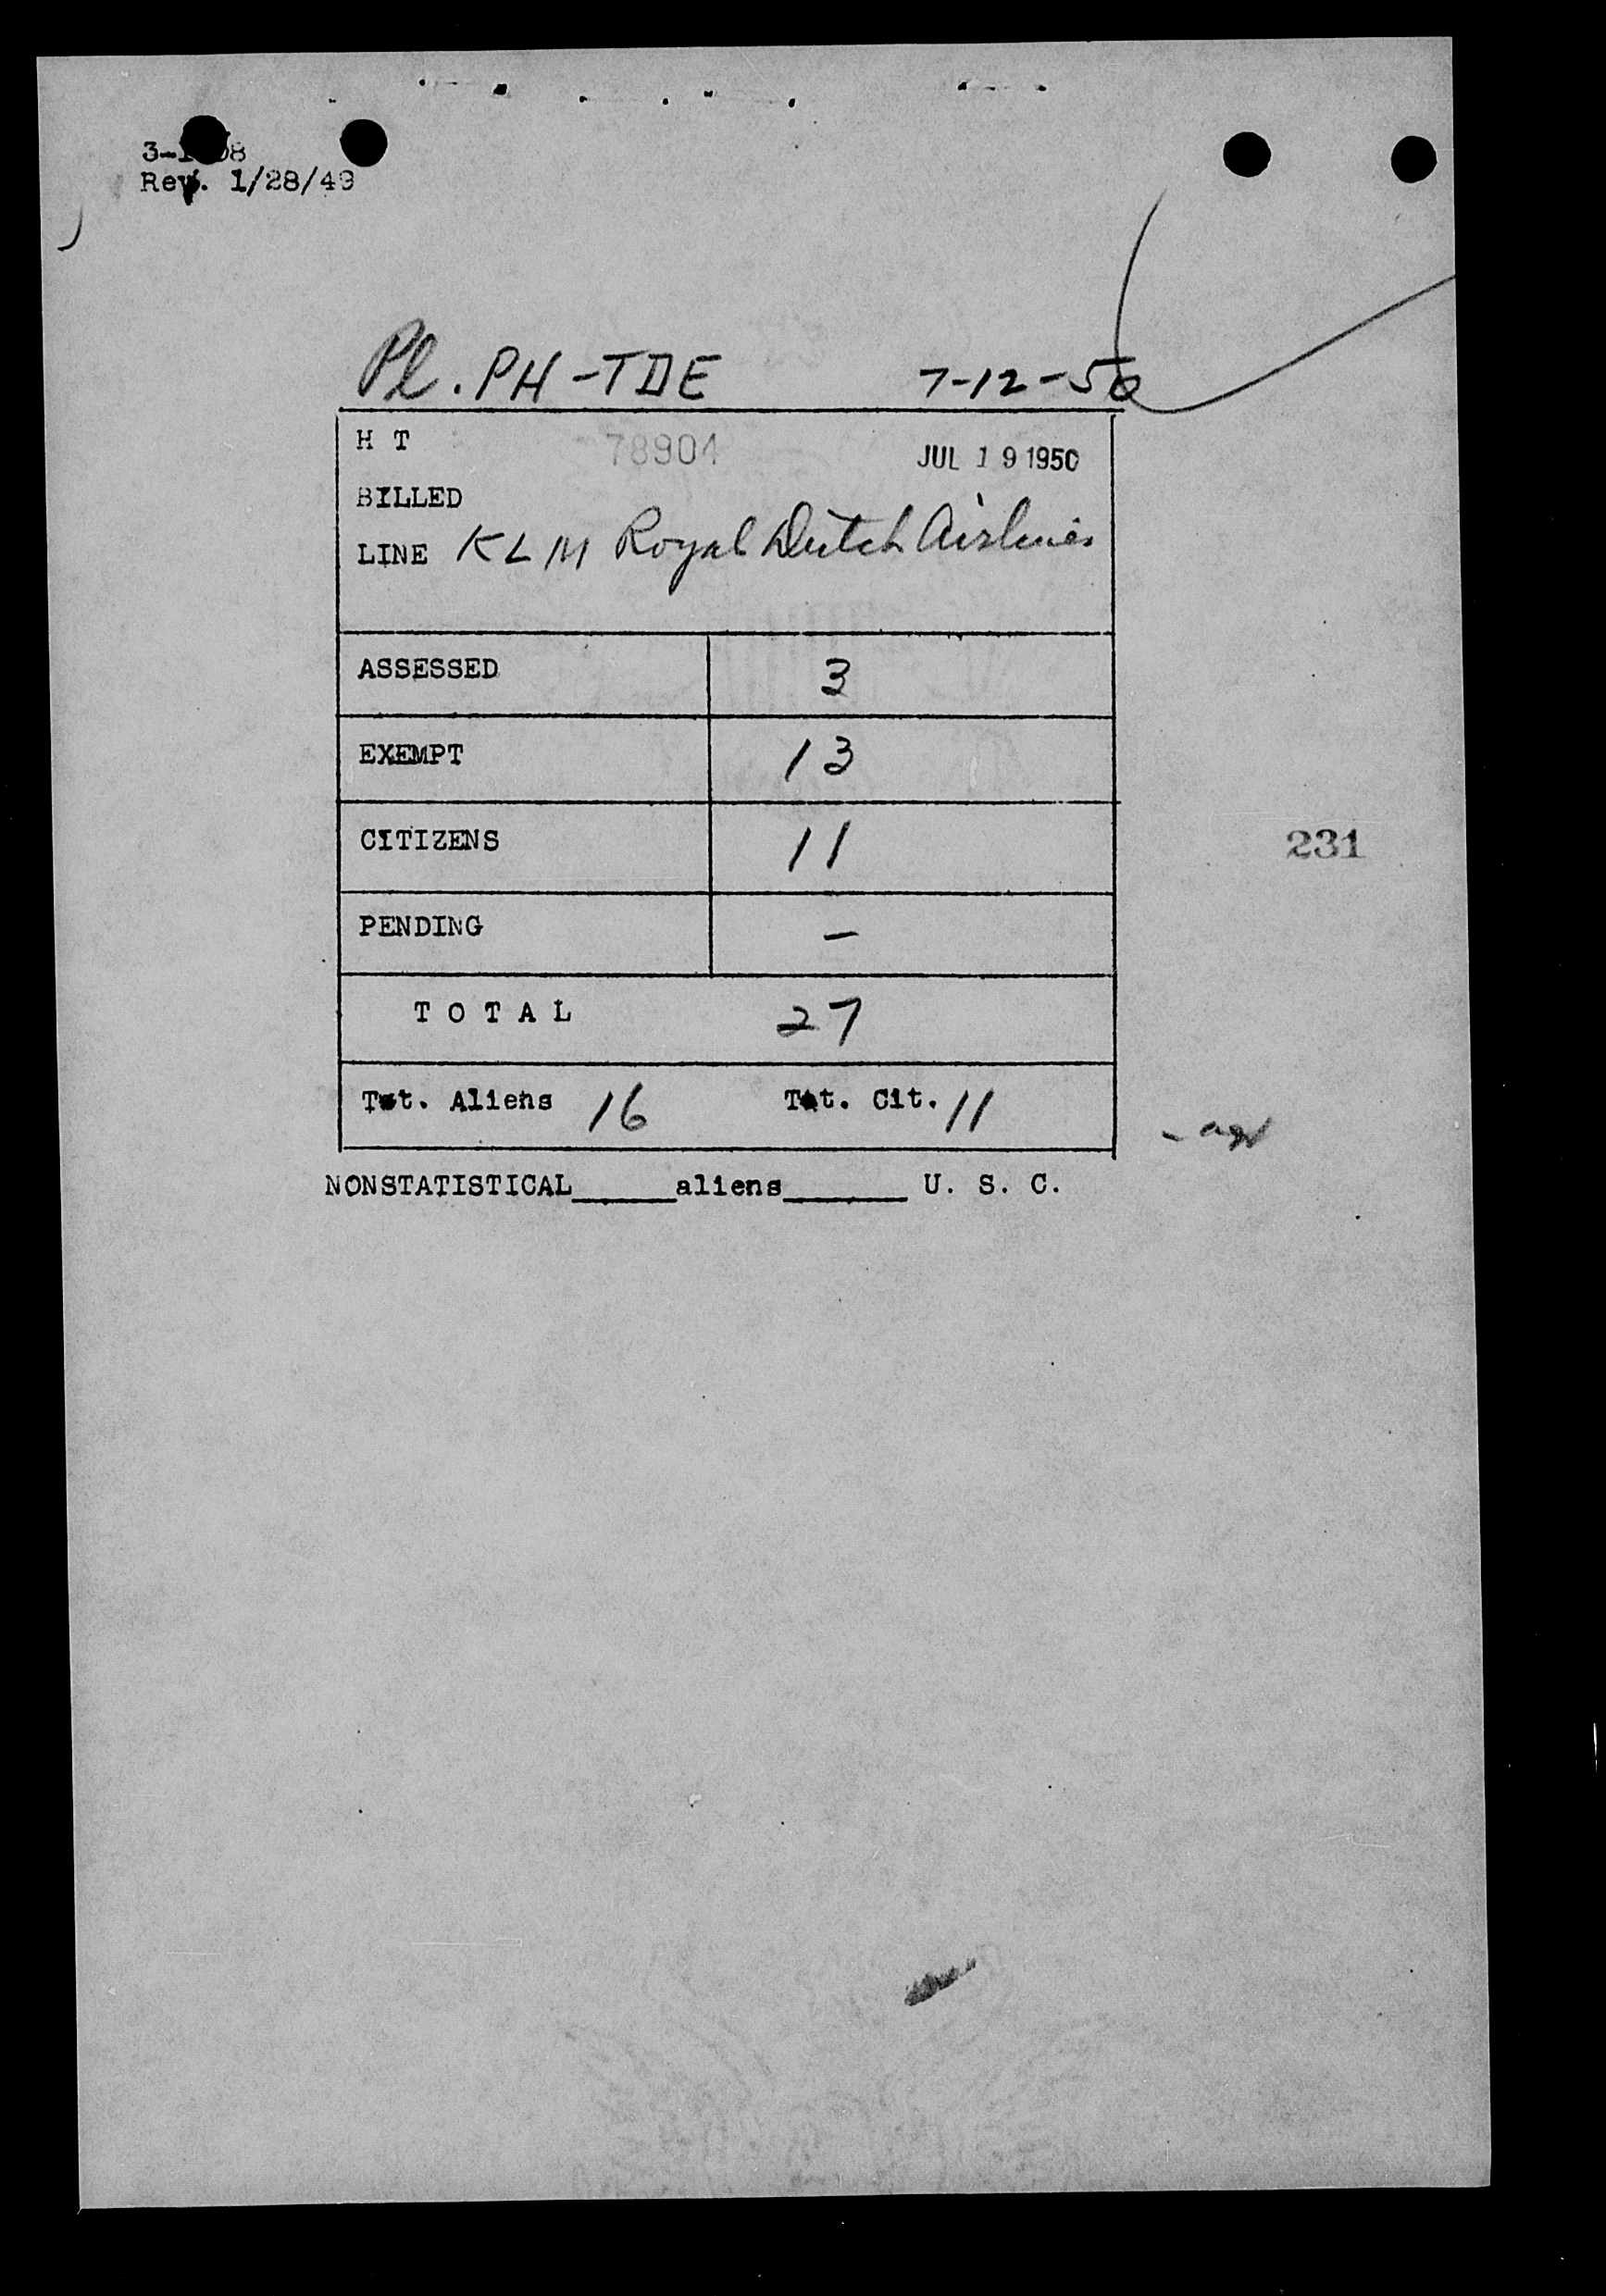 Rev. 1/28/49
Pl. PH-TDE 7-12-50
H T 78904 JUL 19 1950
BILLED
LINE KLM Royal Dutch Airlines
ASSESSED 3
EXEMPT 13
CITIZENS 11
231
PENDING –
TOTAL 27
Tot. Aliens 16 Tot. Cit. 11
NONSTATISTICAL______aliens_______ U. S. C.